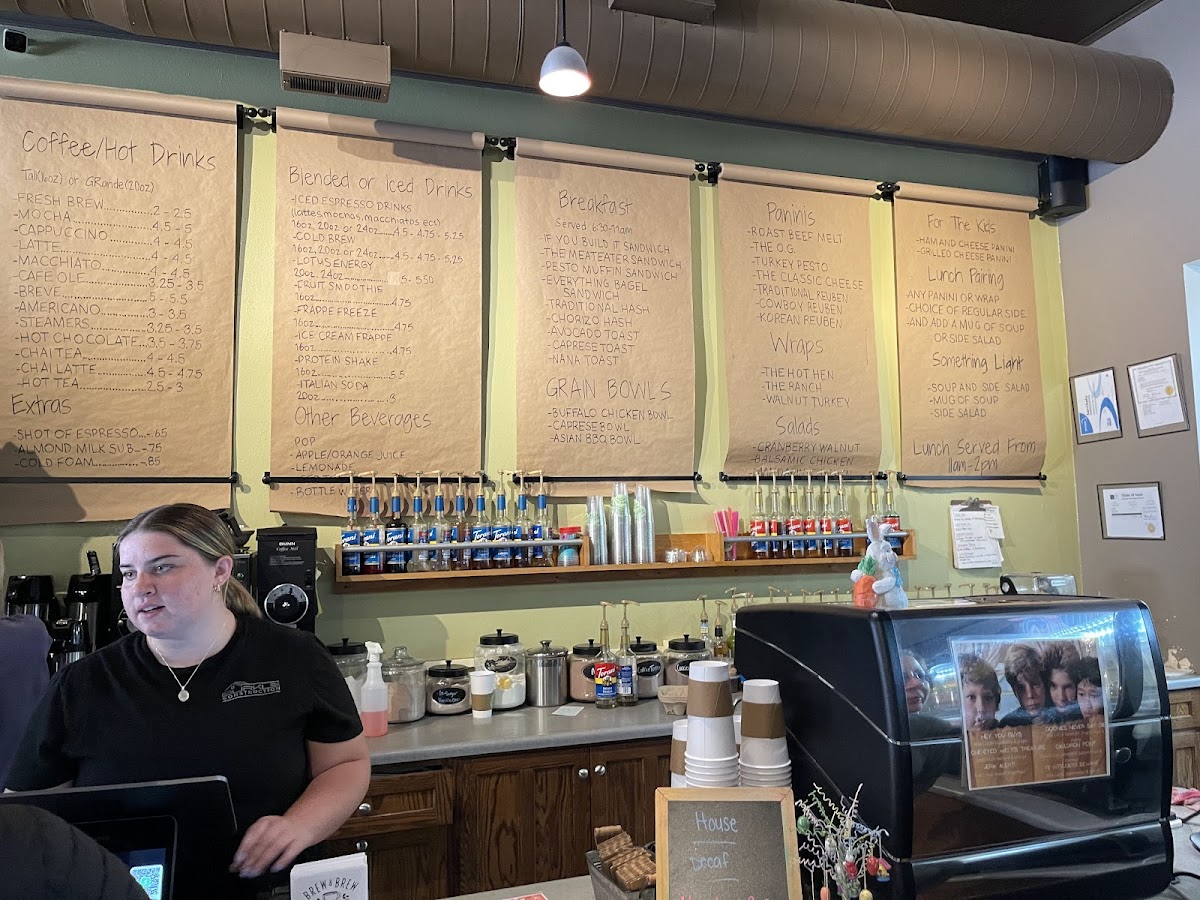 Coffee/Hot Drinks
Tall(16oz) or GRande(20oz)
-FRESH BREW............2 - 2.5
-MOCHA....................4.5 - 5
-CAPPUCCINO............4 - 4.5
-LATTE.....................4 - 4.5
-MACCHIATO.............4 - 4.5
-CAFE OLE...............3.25 - 3.5
-BREVE....................5 - 5.5
-AMERICANO............3 - 3.5
-STEAMERS...............3.25 - 3.5
-HOT CHOCOLATE...3.5 - 3.75
-CHAI TEA..........4 - 4.5
-CHAI LATTE............4.5 - 4.75
-HOT TEA................2.5 - 3
Extras
-SHOT OF ESPRESSO...65
-ALMOND MILK SUB...75
-COLD FOAM.............85
Blended or Iced Drinks
-ICED ESPRESSO DRINKS
(lattes,mochas,macchiatos,ect)
16oz, 20oz or 24oz......4.5 - 4.75 - 5.25
-COLD BREW
16oz, 20oz or 24oz......4.5 - 4.75 - 5.25
-LOTUS ENERGY
20oz, 24oz.............5 - 5.50
-FRUIT SMOOTHIE
16oz......................4.75
-FRAPPE FREEZE
16oz......................4.75
-ICE CREAM FRAPPE
16oz......................4.75
-PROTEIN SHAKE
16oz......................5.5
-ITALIAN SODA
20oz......................3
Other Beverages
-POP
-APPLE/ORANGE JUICE
-LEMONADE
-BOTTLE WATER
Breakfast
Served 6:30-11am
-IF YOU BUILD IT SANDWICH
-THE MEATEATER SANDWICH
-PESTO MUFFIN SANDWICH
-EVERYTHING BAGEL
SANDWICH
-TRADITIONAL HASH
-CHORIZO HASH
-AVOCADO TOAST
-CAPRESE TOAST
-NANA TOAST
GRAIN BOWLS
-BUFFALO CHICKEN BOWL
-CAPRESE BOWL
-ASIAN BBQ BOWL
Paninis
-ROAST BEEF MELT
-THE O.G.
-TURKEY PESTO
-THE CLASSIC CHEESE
-TRADITIONAL REUBEN
-COWBOY REUBEN
-KOREAN REUBEN
Wraps
-THE HOT HEN
-THE RANCH
-WALNUT TURKEY
Salads
-CRANBERRY WALNUT
-BALSAMIC CHICKEN
For The Kids
-HAM AND CHEESE PANINI
-GRILLED CHEESE PANINI
Lunch Pairing
ANY PANINI OR WRAP
-CHOICE OF REGULAR SIDE
-AND ADD A MUG OF SOUP
OR SIDE SALAD
Something Light
-SOUP AND SIDE SALAD
-MUG OF SOUP
-SIDE SALAD
Lunch Served From
11am-2pm
BUNN
Torani
Torani
CONSTRUCTION
HEY YOU GUYS
House
Decaf
BREW & BREW